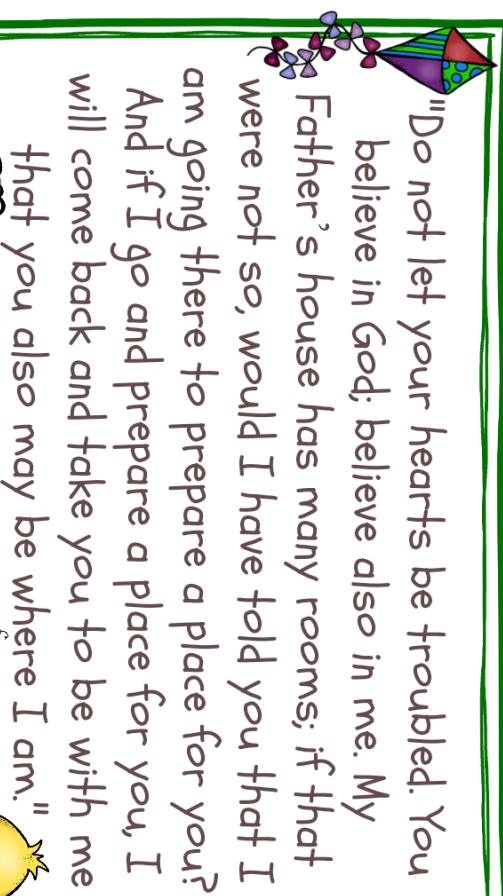 "Do not let your hearts be troubled. You
believe in God; believe also in me. My
Father's house has many rooms; if that
were not so, would I have told you that I
am going there to prepare a place for you?
And if I go and prepare a place for you, I
will come back and take you to be with me
that you also may be where I am."